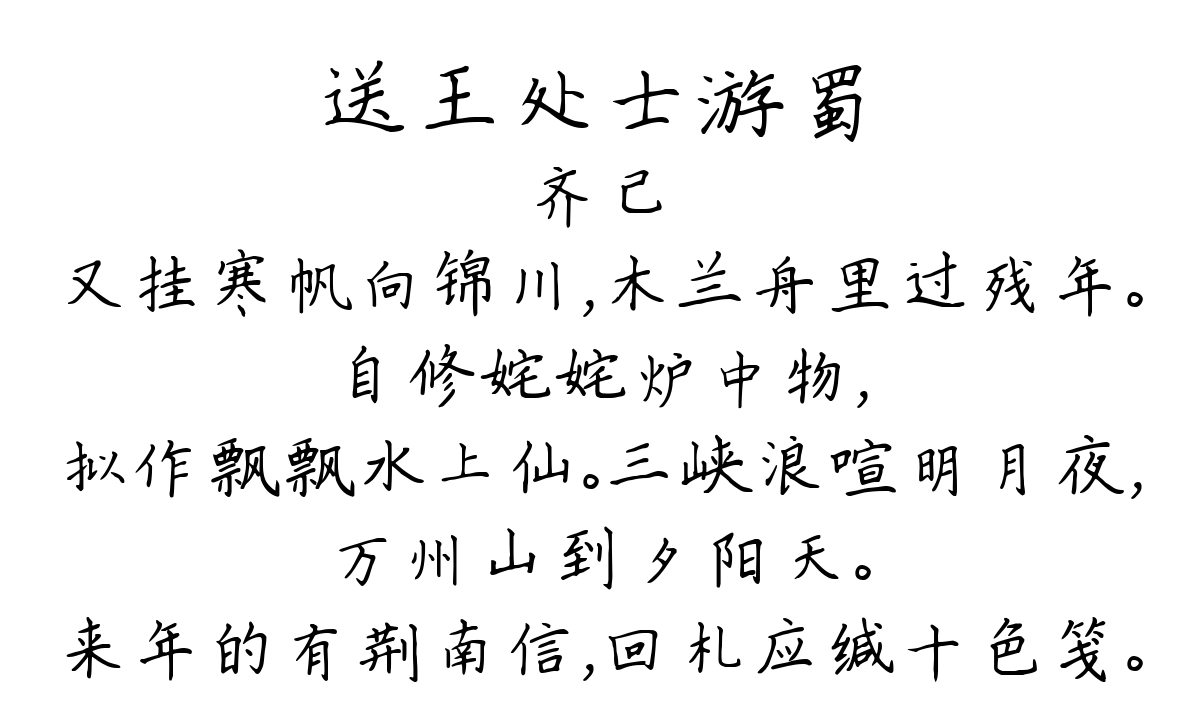 送王处士游蜀
齐己
又挂寒帆向锦川,木兰舟里过残年。
自修姹姹炉中物,
拟作飘飘水上仙。三峡浪喧明月夜,
万州山到夕阳天。
来年的有荆南信,回札应缄十色笺。